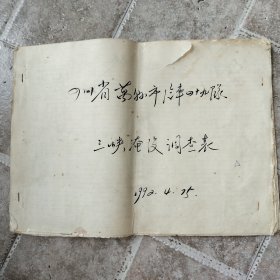 四川省万县市汽车四九队
三峡淹没调查表
1992.4.25.